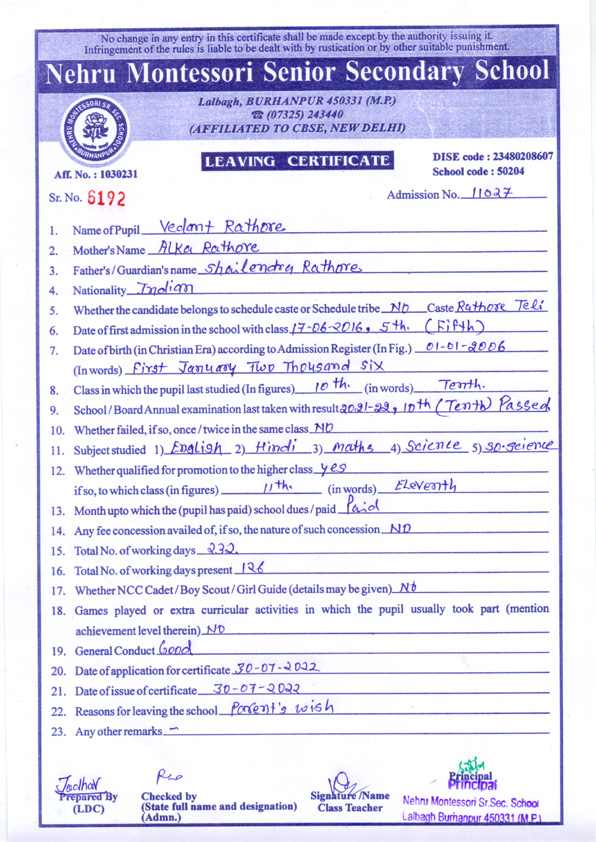 No change in any entry in this certificate shall be made except by the authority issuing it.
Infringement of the rules is liable to be dealt with by rustication or by other suitable punishment.
Nehru Montessori Senior Secondary School
Lalbagh, BURHANPUR 450331 (M.P.)
☎ (07325) 243440
(AFFILIATED TO CBSE, NEW DELHI)
NEHRU MONTESSORI SR. SEC. SCHOOL
BURHANPUR
LEAVING CERTIFICATE
DISE code : 23480208607
School code : 50204
Aff. No. : 1030231
Sr. No. 6192
Admission No. 11027
1. Name of Pupil Vedant Rathore
2. Mother's Name Alka Rathore
3. Father's / Guardian's name Shailendra Rathore
4. Nationality Indian
5. Whether the candidate belongs to schedule caste or Schedule tribe NO Caste Rathore Teli
6. Date of first admission in the school with class 17-06-2016, 5th. (Fifth)
7. Date of birth (in Christian Era) according to Admission Register (In Fig.) 01-01-2006
(In words) First January Two Thousand Six
8. Class in which the pupil last studied (In figures) 10th. (in words) Tenth.
9. School / Board Annual examination last taken with result 2021-22, 10th (Tenth) Passed
10. Whether failed, if so, once / twice in the same class NO
11. Subject studied 1) English 2) Hindi 3) Maths 4) Science 5) SO-Science
12. Whether qualified for promotion to the higher class yes
if so, to which class (in figures) 11th. (in words) Eleventh
13. Month upto which the (pupil has paid) school dues / paid Paid
14. Any fee concession availed of, if so, the nature of such concession NO
15. Total No. of working days 232.
16. Total No. of working days present 126
17. Whether NCC Cadet / Boy Scout / Girl Guide (details may be given) NO
18. Games played or extra curricular activities in which the pupil usually took part (mention
achievement level therein) NO
19. General Conduct Good
20. Date of application for certificate 30-07-2022
21. Date of issue of certificate 30-07-2022
22. Reasons for leaving the school Parent's wish
23. Any other remarks —
Prepared By
(LDC)
Checked by
(State full name and designation)
(Admn.)
Signature /Name
Class Teacher
Principal
Principal
Nehru Montessori Sr.Sec. School
Lalbagh Burhanpur 450331 (M.P.)